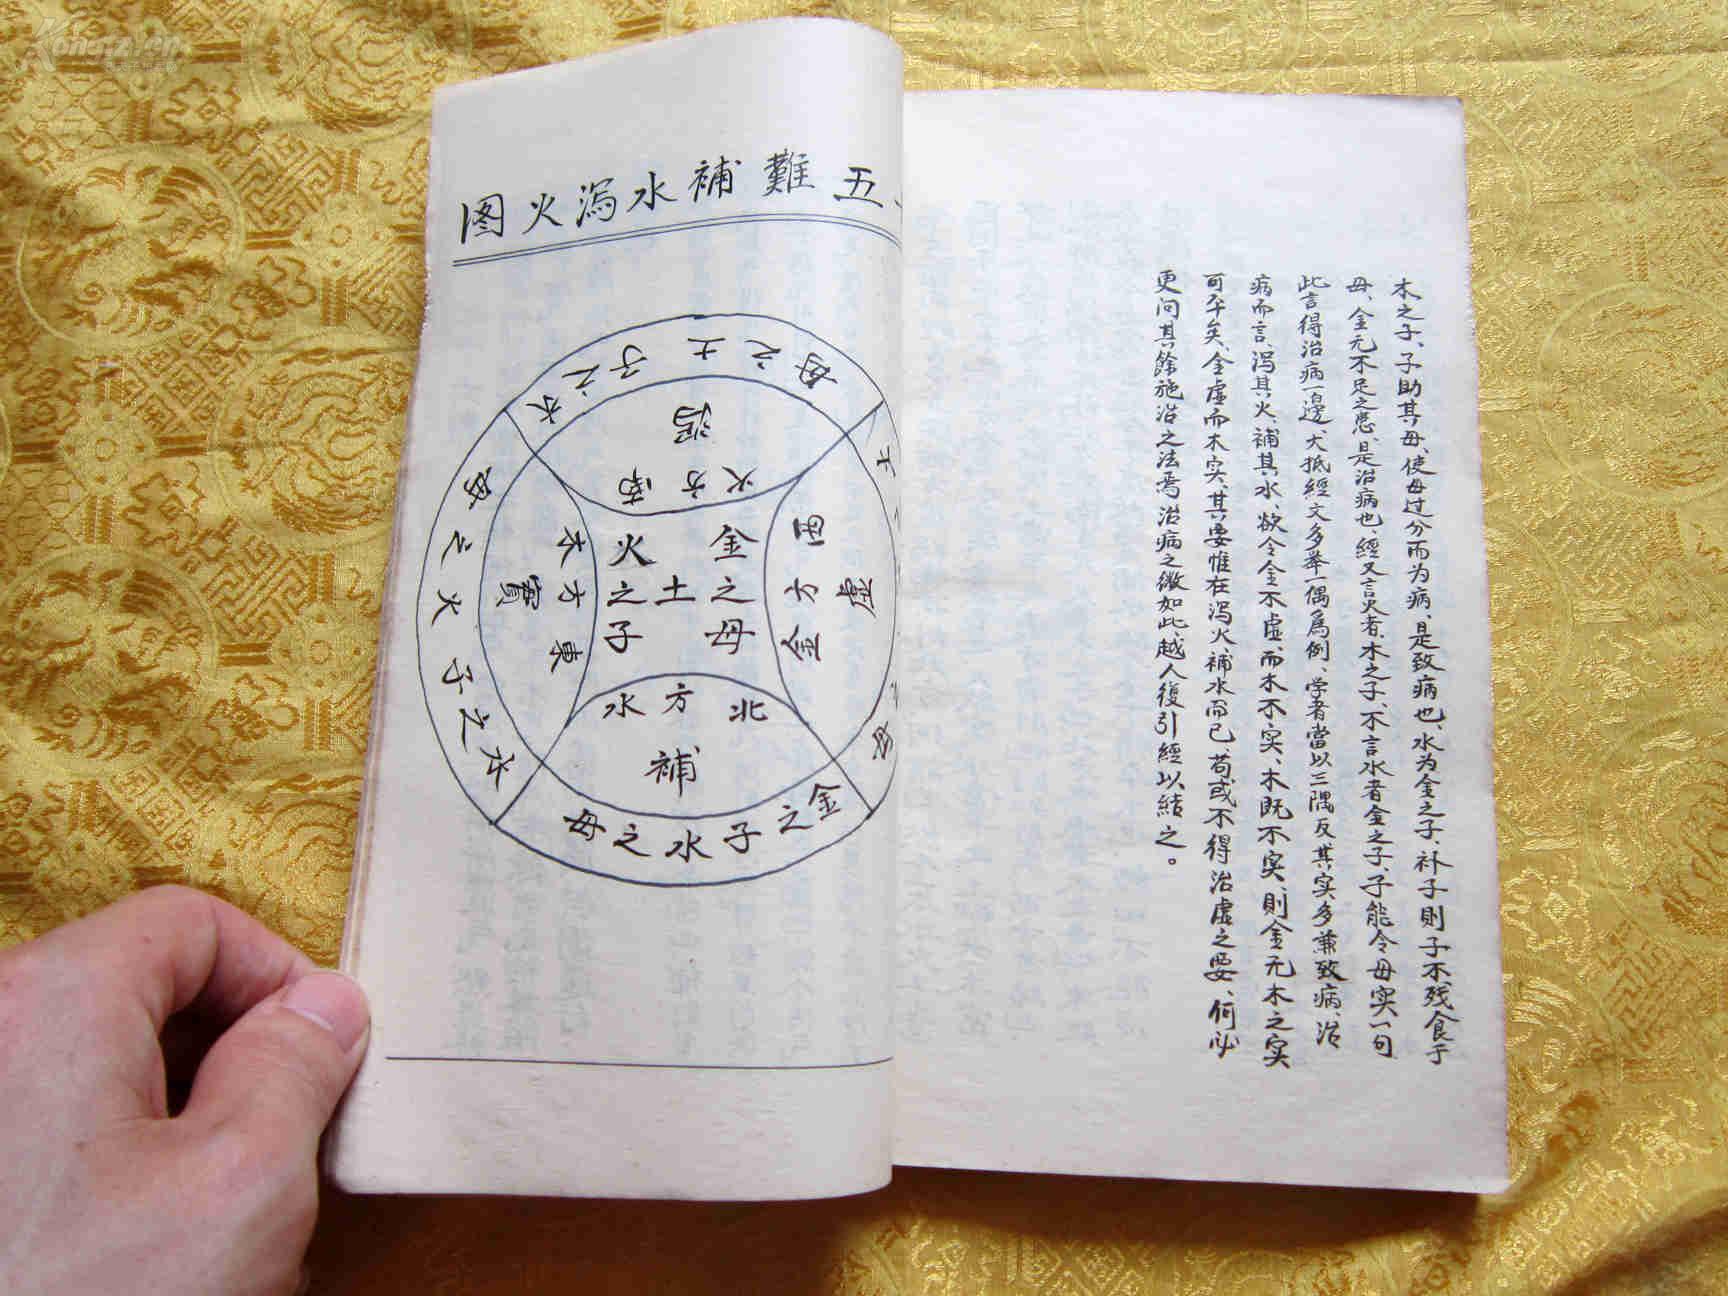 木之子、子助其母、使母过分而为病、是致病也、水为金之子、补子則子不残食于
母、金元不足之患、是治病也、經又言火者、木之子、不言水者金之子、子能令母实一句
此言得治病一邊、大抵經文多举一偶為例、学者當以三隅反其实多兼致病、治
病而言、泻其火、補其水、欲令金不虚、而木不实、木既不实、則金无木之实
可平矣、金虚而木实、其要惟在泻火、補水而已、苟或不得治虚之要、何必
更问其餘施治之法焉、治病之微如此越人復引經以結之。
五難補水泻火图
母之土子之火
泻
南方火
母之火子之水
實
東方木
火之子
土
金之母
西方金
虚
北方水
補
金之子水之母
Kongz.cn